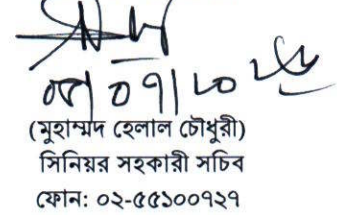 (মুহাম্মদ হেলাল চৌধুরী)
সিনিয়র সহকারী সচিব
ফোন: ০২-৫৫১০০৭২৭